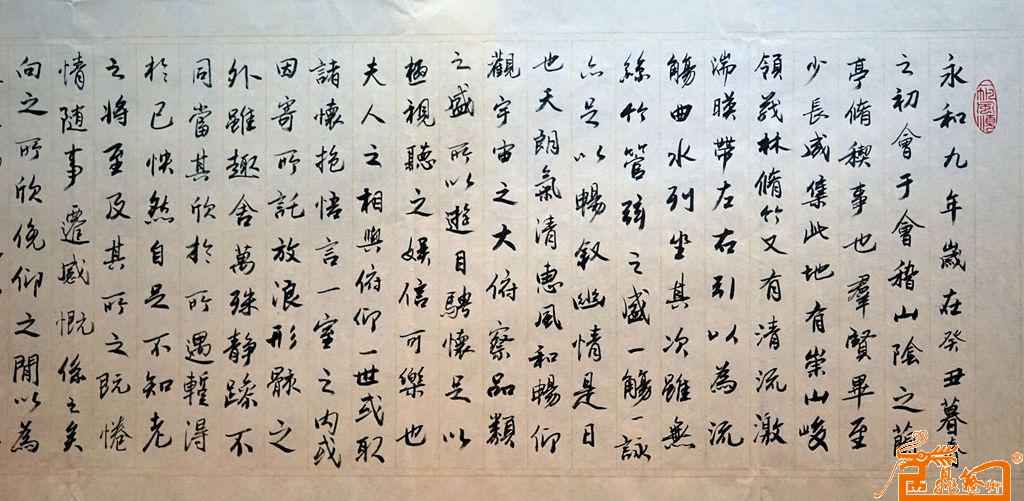 永和九年歲在癸丑暮春
之初會于會稽山陰之蘭
亭脩稧事也羣賢畢至
少長咸集此地有崇山峻
領茂林脩竹又有清流激
湍暎帶左右引以為流
觴曲水列坐其次雖無
絲竹管弦之盛一觴一詠
亦足以暢敘幽情是日
也天朗氣清惠風和暢仰
觀宇宙之大俯察品類
之盛所以遊目騁懷足以
極視聽之娛信可樂也
夫人之相與俯仰一世或取
諸懷抱悟言一室之內或
因寄所託放浪形骸之
外雖趣舍萬殊靜躁不
同當其欣於所遇蹔得
於己怏然自足不知老
之將至及其所之既惓
情隨事遷感慨係之矣
向之所欣俛仰之閒以為